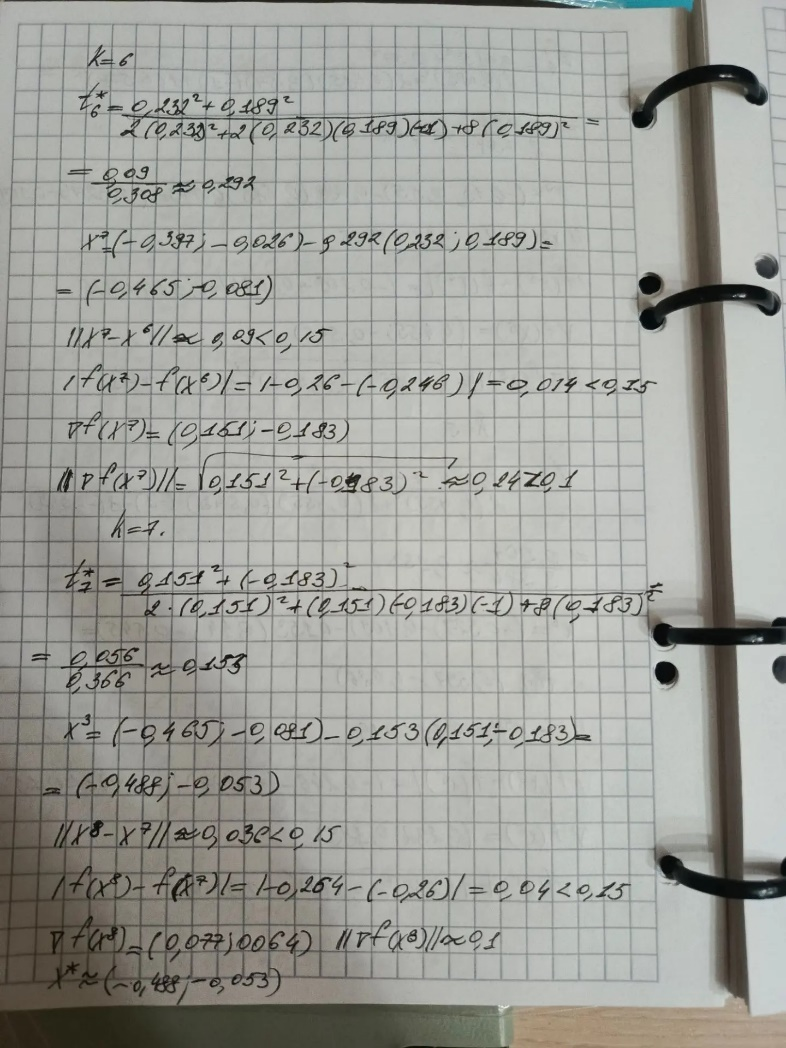 K=6
t₆* = (0,232² + 0,189²) / (2(0,232)² + 2(0,232)(0,189)(-1) + 8(0,189)²) =
= 0,09 / 0,308 ≈ 0,292
x⁷ = (-0,397; -0,026) - 0,292(0,232; 0,189) =
= (-0,465; -0,081)
||x⁷ - x⁶|| ≈ 0,09 < 0,15
|f(x⁷) - f(x⁶)| = |-0,26 - (-0,246)| = 0,014 < 0,15
∇f(x⁷) = (0,151; -0,183)
||∇f(x⁷)|| = √(0,151² + (-0,183)²) ≈ 0,24 > 0,1
k=7.
t₇* = (0,151² + (-0,183)²) / (2·(0,151)² + (0,151)(-0,183)(-1) + 8(0,183)²) =
= 0,056 / 0,366 ≈ 0,153
x³ = (-0,465; -0,081) - 0,153(0,151; -0,183) =
= (-0,488; -0,053)
||x⁸ - x⁷|| ≈ 0,036 < 0,15
|f(x⁸) - f(x⁷)| = |-0,264 - (-0,26)| = 0,04 < 0,15
∇f(x⁸) = (0,077; 0064) ||∇f(x⁸)|| ≈ 0,1
x* ≈ (-0,488; -0,053)